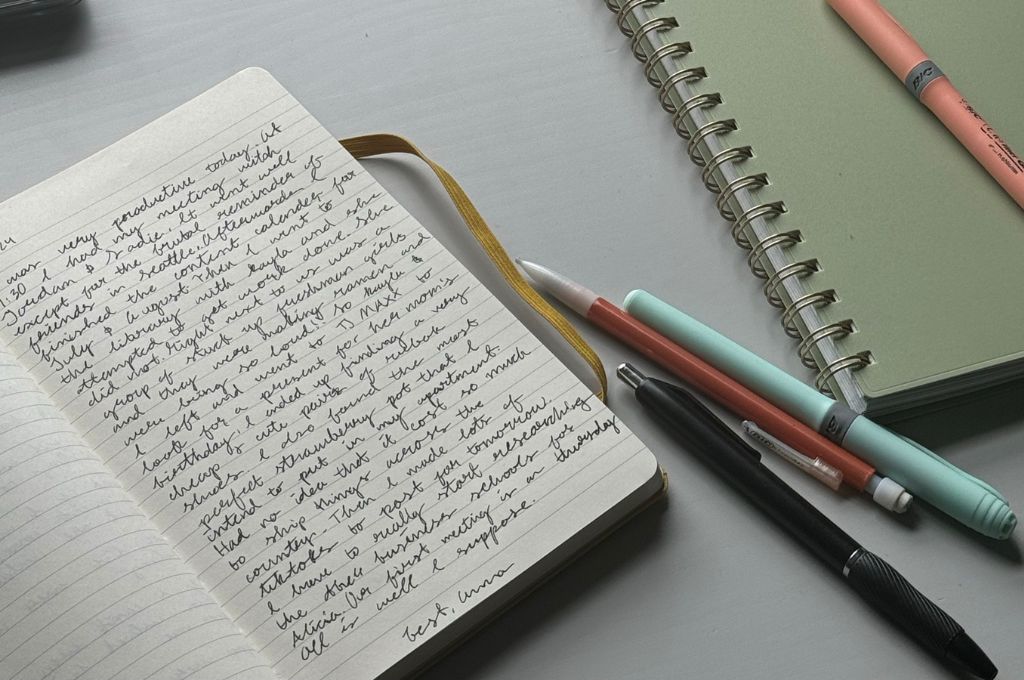 24
was very productive today. At
1:30 I had my meeting with
Jordan & Sadie. It went well
except for the brutal reminder of
friends in seattle. Afterwards I
finished the content calender for
July & August. Then I went to
the library with kayla and she
attempted to get work done. She
did not. Right next to us was a
group of stuck up freshman girls
and they were making ramen and
were being so loud!! So Kayla &
I left and went to TJ MAXX to
look for a present for her mom's
birthday. I ended up finding a very
cheap & cute pair of reebok
shoes. I also found the most
perfect strawberry pot that I
intend to put in my apartment.
Had no idea that it cost so much
to ship things across the
country. Then I made lots of
tiktoks to post for tomorrow.
I have to really start researching
the business schools for
Alicia. Our first meeting is on thursday
All is well I suppose.
best, anna
BIC
BIC